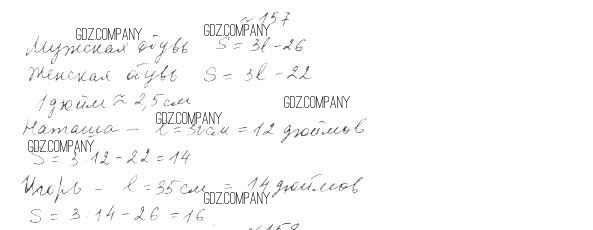 №157
GDZ.COMPANY GDZ.COMPANY
Мужская обувь S = 3l - 26
Женская обувь S = 3l - 22
1 дюйм ≈ 2,5 см GDZ.COMPANY
GDZ.COMPANY
Наташа - l = 30 см = 12 дюймов
GDZ.COMPANY
S = 3·12 - 22 = 14
Игорь - l = 35 см = 14 дюймов
GDZ.COMPANY
S = 3·14 - 26 = 16
№158